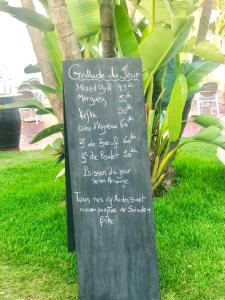 Grillade du Jour
Mixed Grill 85
Merguez 50
Kefta 50
Cotes d'Agneau 60
3 de Bœuf 60
3 de Poulet 50
Poisson du jour
Selon Arrivage
Tous nos grillades sont
accompagnées de Salade +
frite